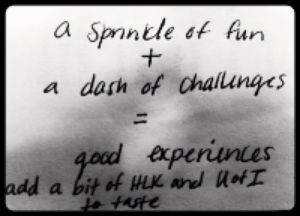 a sprinkle of fun
+
a dash of challenges
=
good experiences
add a bit of HLK and U of I
to taste